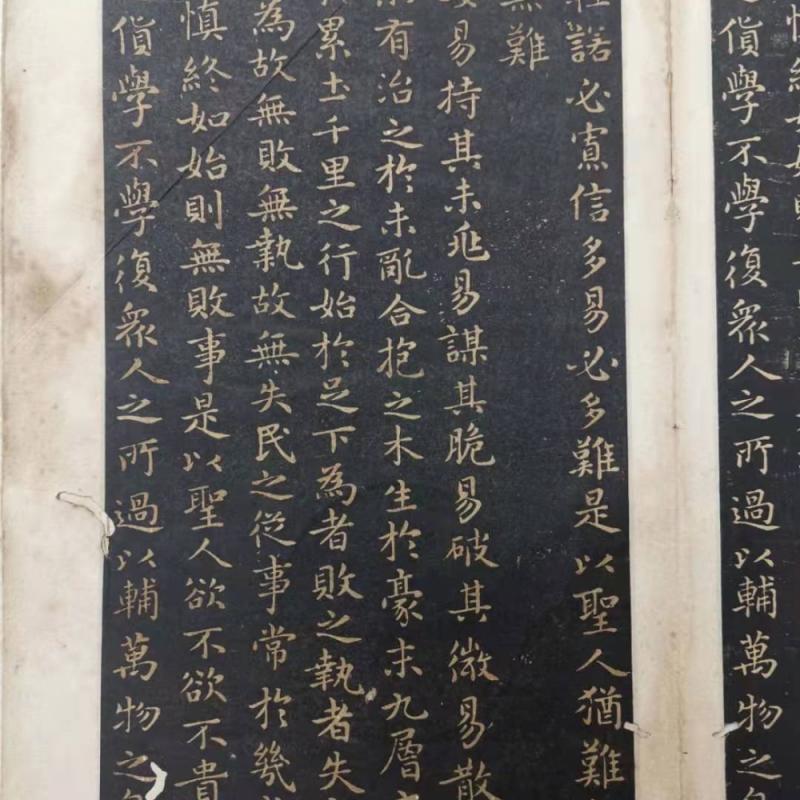 慎終如始則
貨學不學復眾人之所過以輔萬物之
諾必寡信多易必多難是以聖人猶難
無難
易持其未兆易謀其脆易破其微易散
有治之於未亂合抱之木生於豪末九層
累土千里之行始於足下為者敗之執者失
為故無敗無執故無失民之從事常於幾
慎終如始則無敗事是以聖人欲不欲不貴
貨學不學復眾人之所過以輔萬物之